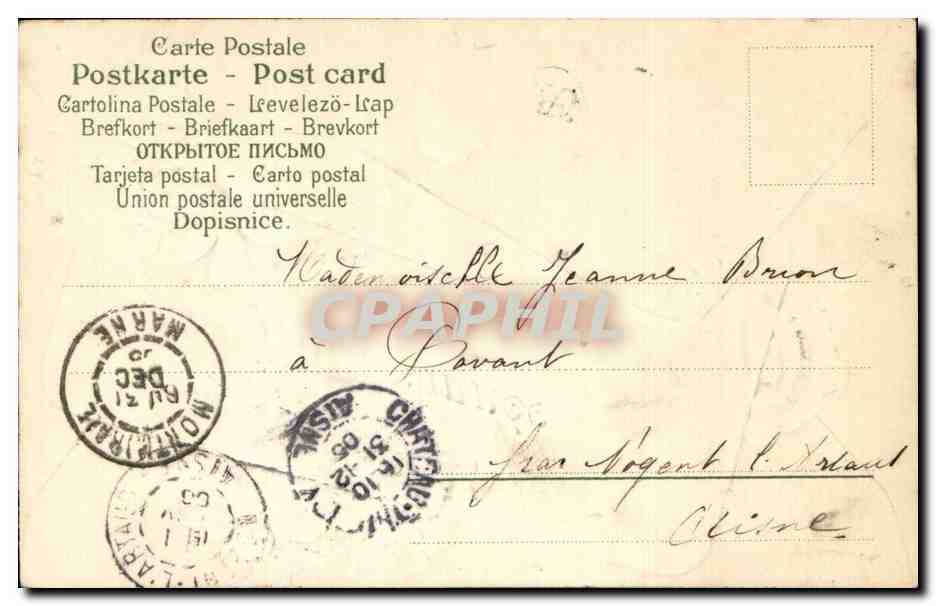 Carte Postale
Postkarte - Post card
Cartolina Postale - Levelező-Lap
Brefkort - Briefkaart - Brevkort
ОТКРЫТОЕ ПИСЬМО
Tarjeta postal - Carto postal
Union postale universelle
Dopisnice.
Mademoiselle Jeanne Brion
CPAPHIL
à Pavant
par Nogent l'Artaud
Aisne
MONTMIRAIL
MARNE
31
DEC
CHATEAU-THIERRY
AISNE
16 10
31-12
05
L'ARTAUD
AISNE